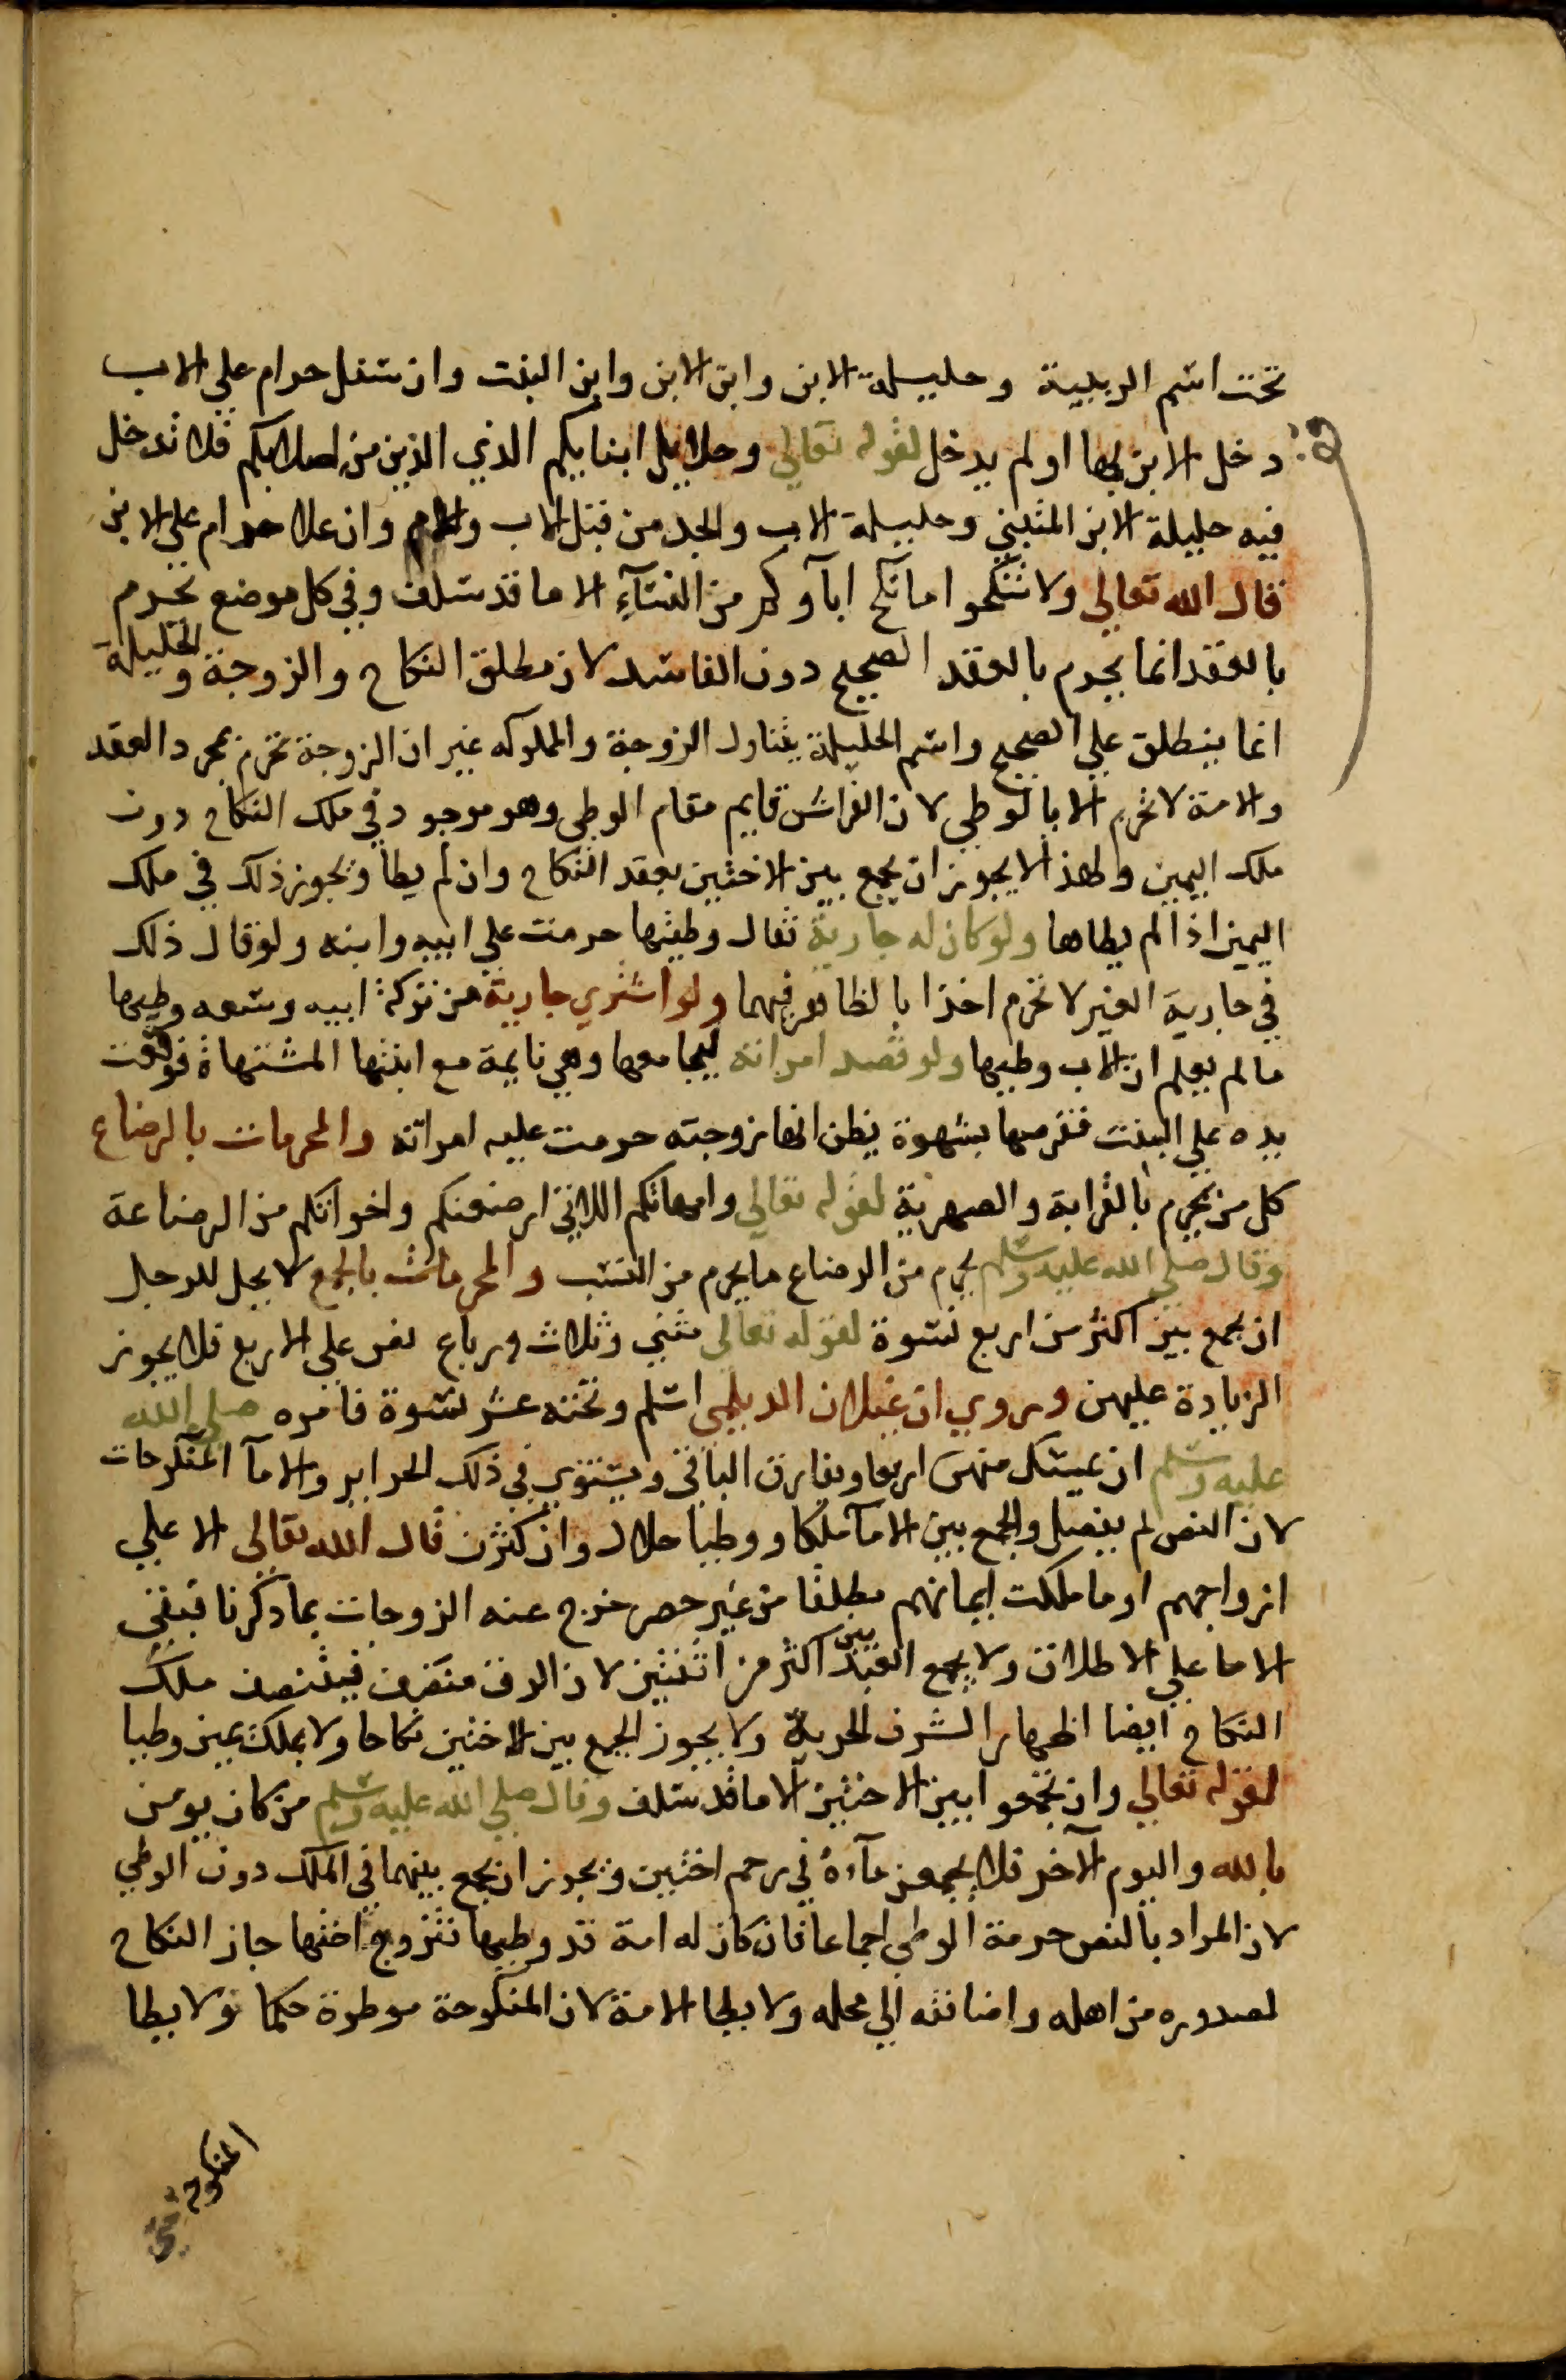 تحت اسم الربيبة وحليلة الابن وابن الابن وابن البنت وان سفل حرام علي الاب
دخل الابن بها او لم يدخل لقوله تعالي وحلايل ابنايكم الذي الذين من اصلابكم فلا تدخل
فيه حليلة الابن المتبني وحليلة الاب والجد من قبل الاب والام وان علا حرام علي الابن
قال الله تعالي ولا تنكحوا ما نكح اباوكم من النسآء الا ما قد سلف وفي كل موضع تحرم
بالعقد انما يحرم بالعقد الصحيح دون الفاسد لان مطلق النكاح والزوجة والحليلة
انما ينطلق علي الصحيح واسم الحليلة يتناول الزوجة والمملوكه غير ان الزوجة تحرم بمجرد العقد
والامة لا تحرم الا بالوطي لان الفراش قايم مقام الوطي وهو موجود في ملك النكاح دون
ملك اليمين ولهذا لا يجوز ان يجمع بين الاختين بعقد النكاح وان لم يطا ويجوز ذلك في ملك
اليمين اذا لم يطاها ولو كان له جارية فقال وطيتها حرمت علي ابيه وابنه ولو قال ذلك
في جارية الغير لا تحرم اخذا بالظاهر فيهما ولو اشتري جارية من تركة ابيه وسعه وطيها
ما لم يعلم ان الاب وطيها ولو قصد امراته ليجامعها وهي نايمة مع ابنتها المشتهاة فوقعت
يده علي البنت فقرصها بشهوة يظن انها زوجته حرمت عليه امراته والمحرمات بالرضاع
كل من تحرم بالقرابة والصهرية لقوله تعالي وامهاتكم اللاتي ارضعنكم واخواتكم من الرضاعة
وقال صلي الله عليه وسلم يحرم من الرضاع ما يحرم من النسب والمحرمات بالجمع لا يحل للرجل
ان يجمع بين اكثر من اربع نسوة لقوله تعالي مثني وثلاث ورباع نص علي الاربع فلا يجوز
الزيادة عليهن وروي ان غيلان الديلمي اسلم وتحته عشر نسوة فامره صلي الله
عليه وسلم ان يمسك منهن اربعا ويفارق الباقي ويستوي في ذلك الحراير والامآ المنكوحات
لان النص لم يفصل والجمع بين الامآ ملكا ووطيا حلال وان كثرن قال الله تعالي الا علي
ازواجهم او ما ملكت ايمانهم مطلقا من غير حصر خرج عنه الزوجات بما ذكرنا فبقي
الاما علي الاطلاق ولا يجمع العبد بين اكثر من اثنتين لان الرق منصف فيتنصف ملك
النكاح ايضا اظهارا لشرف الحرية ولا يجوز الجمع بين الاختين نكاحا ولا بملك يمين وطيا
لقوله تعالي وان تجمعوا بين الاختين الا ما قد سلف وقال صلي الله عليه وسلم من كان يومن
بالله واليوم الآخر فلا يجمعن مآءه في رحم اختين ويجوز ان يجمع بينهما في الملك دون الوطي
لان المراد بالنص حرمة الوطي اجماعا فان كان له امة قد وطيها فتزوج اختها جاز النكاح
لصدوره من اهله واضافته الي محله ولا يطا الامة لان المنكوحة موطوة حكما ولا يطا
المنكوحة حتي